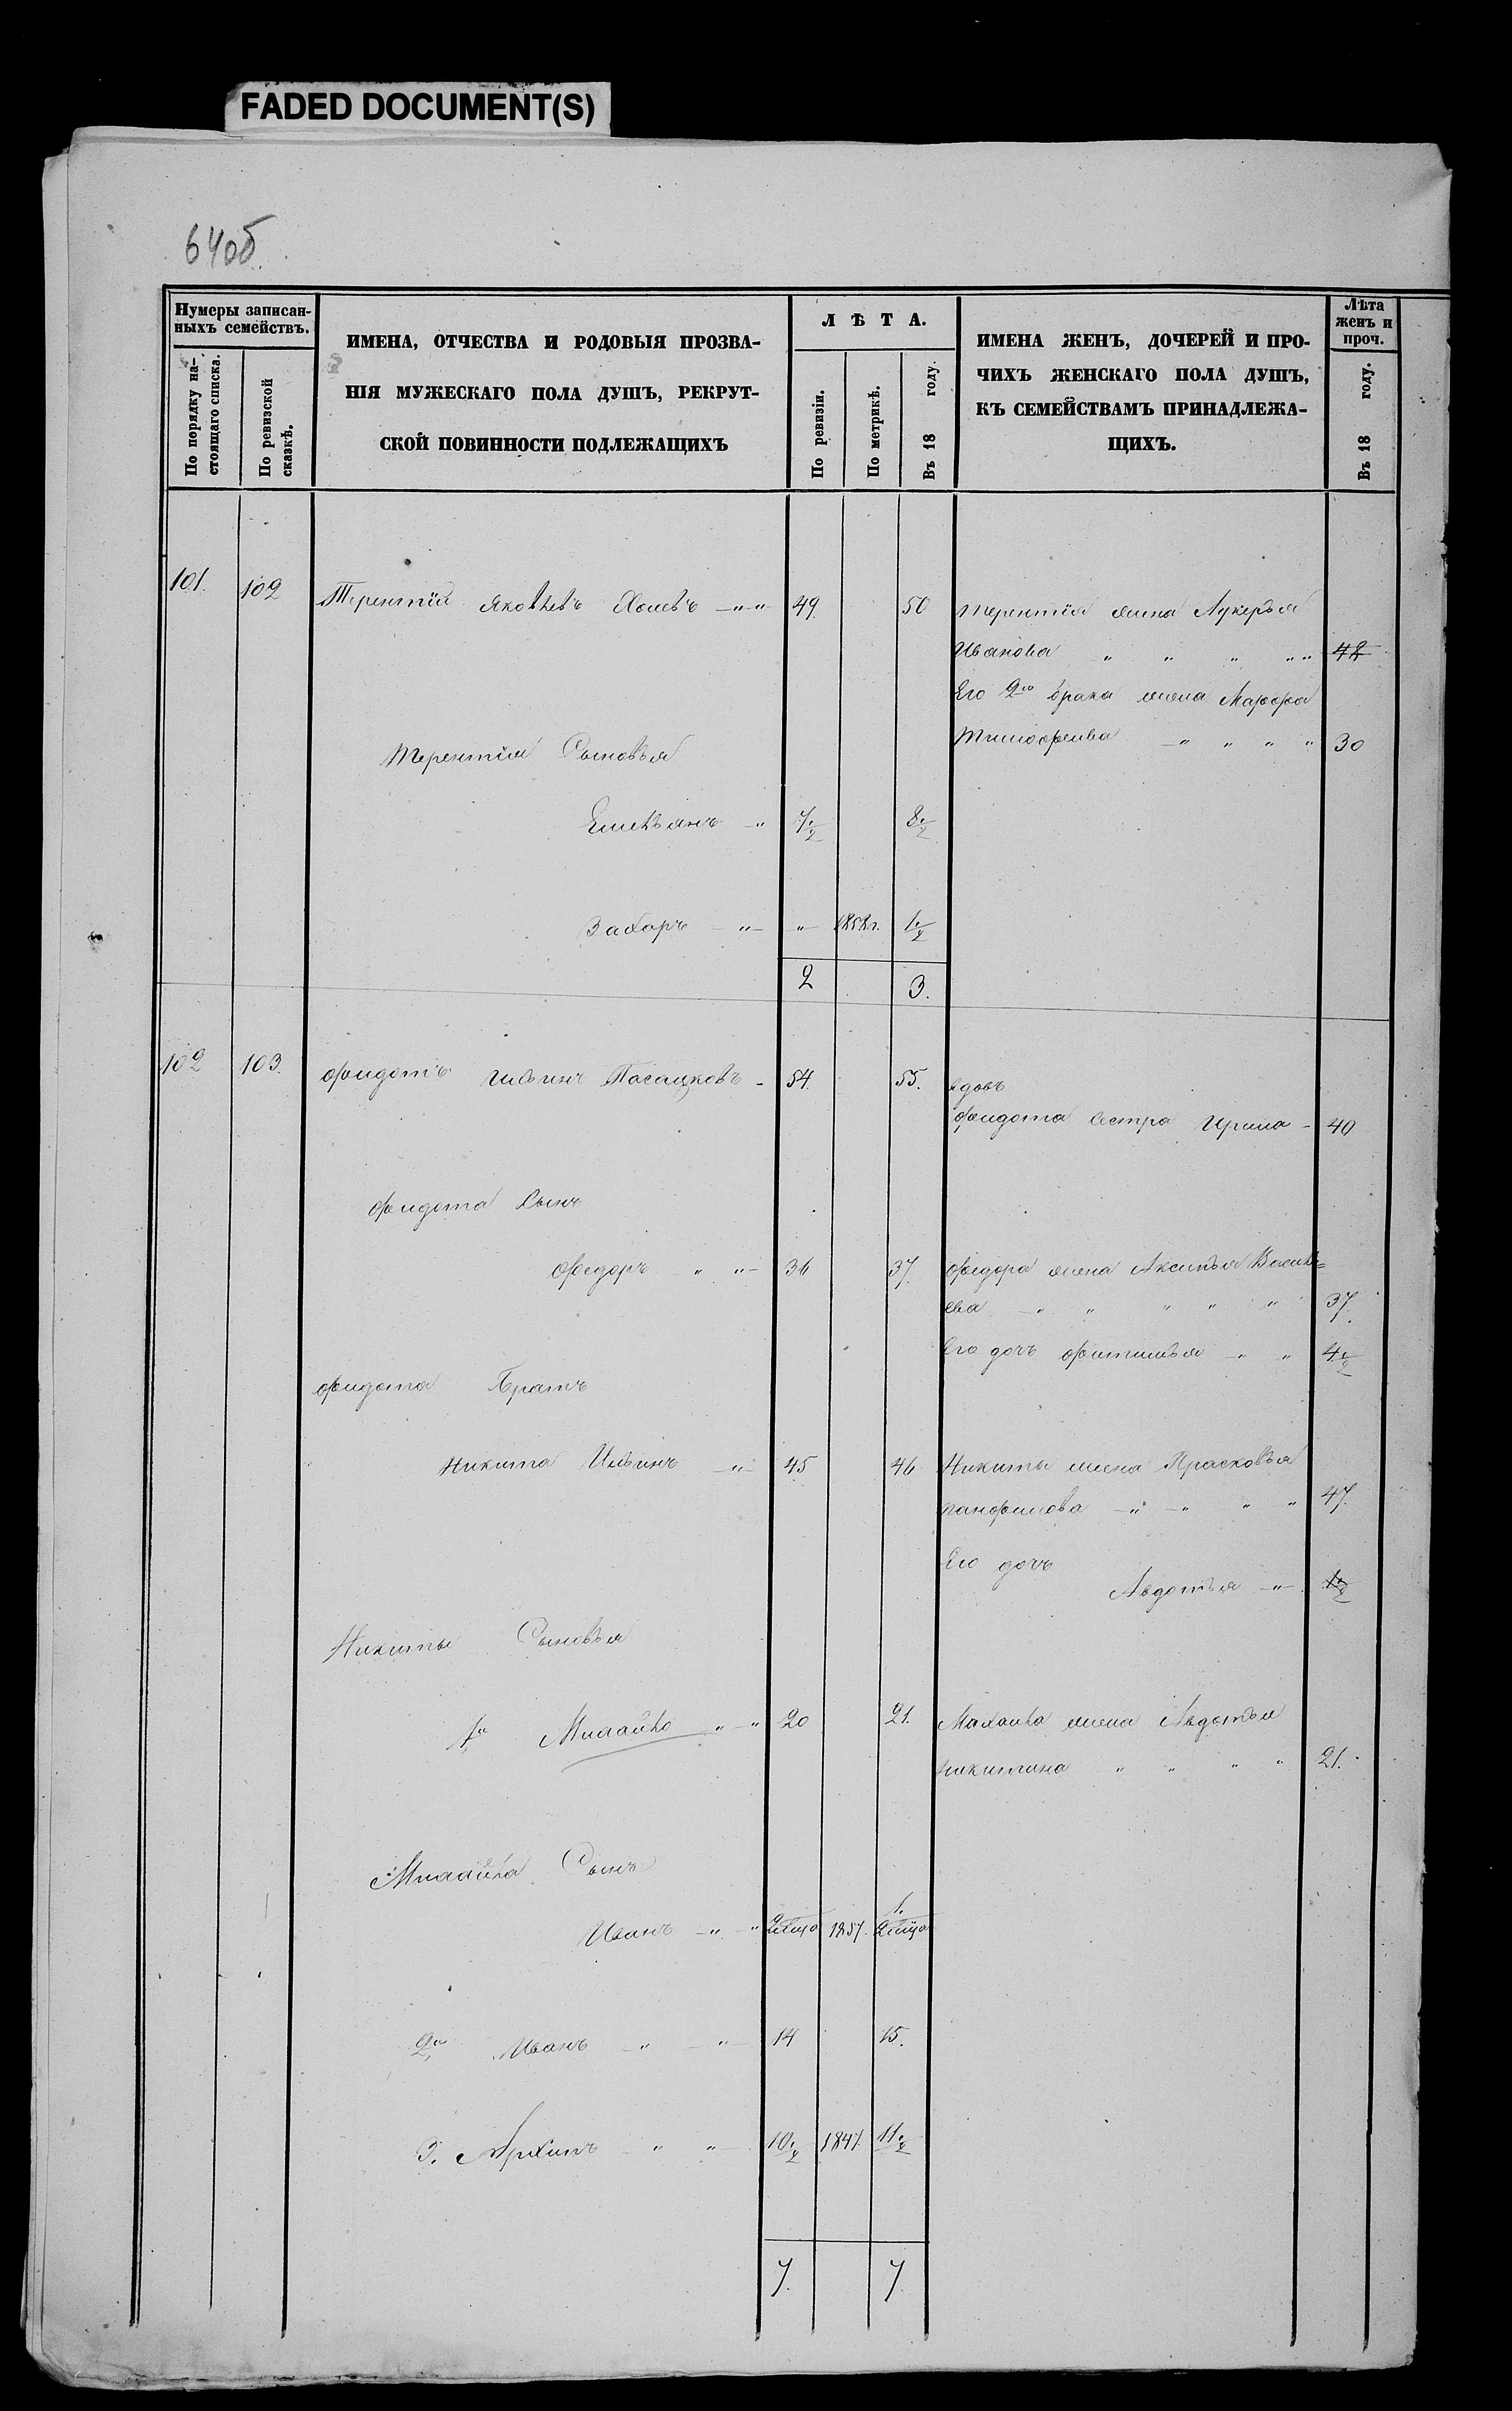 FADED DOCUMENT(S)
64об.
Нумеры записан-
ныхъ семействъ.
По порядку на-
стоящаго списка.
По ревизской
сказкѣ.
ИМЕНА, ОТЧЕСТВА И РОДОВЫЯ ПРОЗВА-
НІЯ МУЖЕСКАГО ПОЛА ДУШЪ, РЕКРУТ-
СКОЙ ПОВИННОСТИ ПОДЛЕЖАЩИХЪ
ЛѢТА.
По ревизіи.
По метрикѣ.
Въ 18 году.
ИМЕНА ЖЕНЪ, ДОЧЕРЕЙ И ПРО-
ЧИХЪ ЖЕНСКАГО ПОЛА ДУШЪ,
КЪ СЕМЕЙСТВАМЪ ПРИНАДЛЕЖА-
ЩИХЪ.
Лѣта
женъ и
проч.
Въ 18 году.
101. 102 Терентій Яковлевъ 49. 50 Терентія жена Лукерья
Иванова " " " " " 42
Его 2го брака жена Марфа
Тимофеива - " " " " 30
Терентія Сыновья
Емельянъ - " 7 1/2 8 1/2
Захаръ - " - " 1858г. 1 1/2
2 3.
102 103. Фидотъ Ильинъ - 54. 55. вдовъ
Фидота Сестра Ирина - 40
Фидота Сынъ
Федоръ - " " - 36 37. Федора жена Аксинья Василь=
ева - " " " " " 37.
Его дочь Фитинья - " " 4 1/2
Фидота Братъ
Никита Ильинъ - " - 45 46 Никиты жена Прасковья
Панфилова - " - " " " 47.
Его дочь
Авдотья - " - 1 1/2
Никиты Сыновья
1й Михайло " - " 20 21. Михаила жена Авдотья
Никитина " " " " 21.
Михаила Сынъ
Иванъ - " - " 1857. 1.
2й Иванъ - " - " - 14 15.
3. Архипъ - " " - 10 1/2 1847 11 1/2
7. 7.